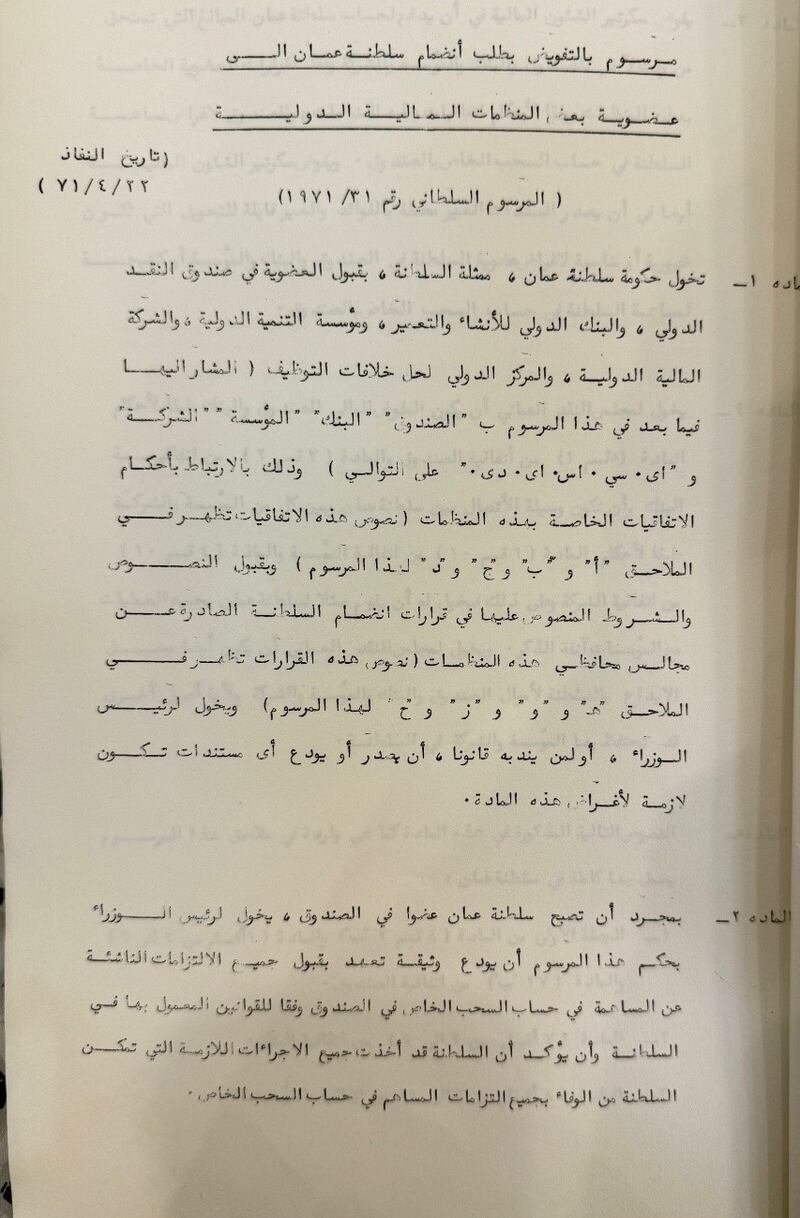 مرسوم بالتفويض بطلب أنضمام سلطنة عمان الى
عضوية بعض المنظمات المالية الدولية
(تاريخ النفاذ
٧١/٤/٢٢ )
( المرسوم السلطاني رقم ٣١/ ١٩٧١)
مادة ١ــ تخول حكومة سلطنة عمان ، ممثلة السلطنة ، بقبول العضوية في صندوق النقد
الدولي ، والبنك الدولي للأنشاء والتعمير ، ومؤسسة التنمية الدولية ، والشركة
المالية الدولية ، والمركز الدولي لحل خلافات التوظيف ( المشار اليها
فيما بعد في هذا المرسوم ب "الصندوق" "البنك" "المؤسسة" "الشركة"
و "اى٠ سي ٠ اس٠ اى٠ دى٠" على التوالي ) وذلك بالارتباط بأحكام
الاتفاقيات الخاصة بهذه المنظمات (نصوص هذه الاتفاقيات تظهر في
الملاحق "أ" و "ب" و "ج" و "د" لهذا المرسوم ) وبقبول النصوص
والشروط المنصوص عليها في قرارات انضمام السلطنة الصادرة عن
مجالس محافظي هذه المنظمات (نصوص هذه القرارات تظهر في
الملاحق "هـ" و "و" و "ز" و "ح" لهذا المرسوم) ويخول لرئيس
الوزراء ، أو لمن يندبه قانونا ، أن يصدر أو يودع أى مستندات تكون
لازمة لأغراض هذه المادة ٠
المادة ٢ــ بمجرد أن تصبح سلطنة عمان عضوا في الصندوق ، يخول لرئيس الوزراء
بحكم هذا المرسوم أن يودع وثيقة تعهد بقبول جميع الالتزامات الناشئة
عن المساهمة في حساب السحب الخاص في الصندوق وفقا للقوانين المعمول بها في
السلطنة وأن يؤكد أن السلطنة قد أخذت جميع الاجراءات اللازمة التي تمكن
السلطنة من الوفاء بجميع التزامات المساهم في حساب السحب الخاص ٠